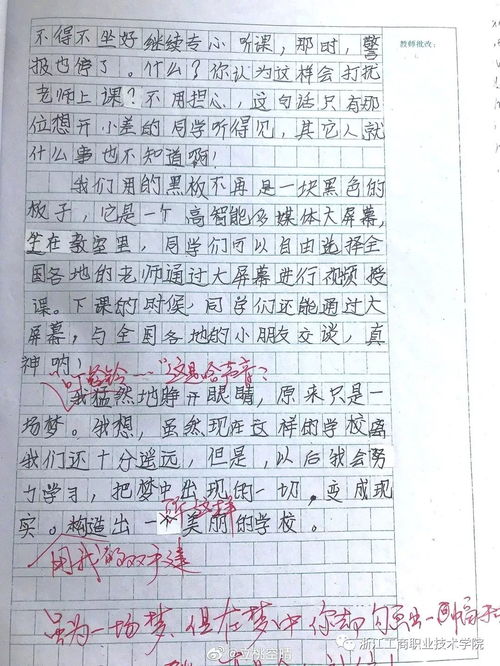 教师批改:
不得不坐好继续专心听课，那时，警
报也停了。什么？你认为这样会打扰
老师上课？不用担心，这句话只有那
位想开小差的同学听得见，其它人就
什么事也不知道啊！
我们用的黑板不再是一块黑色的
板子，它是一个高智能多媒体大屏幕，
坐在教室里，同学们可以自由选择全
国各地的老师通过大屏幕进行视频授
课。下课的时候，同学们还能通过大
屏幕，与全国各地的小朋友交谈，真
神哟！
叮铃铃……"这是啥声音？
我猛然地睁开眼睛，原来只是一
场梦。我想，虽然现在这样的学校离
我们还十分遥远，但是，以后我会努
力学习，把梦中出现的一切，变成现
实。构造出一所美丽的学校。
用我的双手建
虽为一场梦，但在梦中你勾画出一
浙江工商职业技术学院